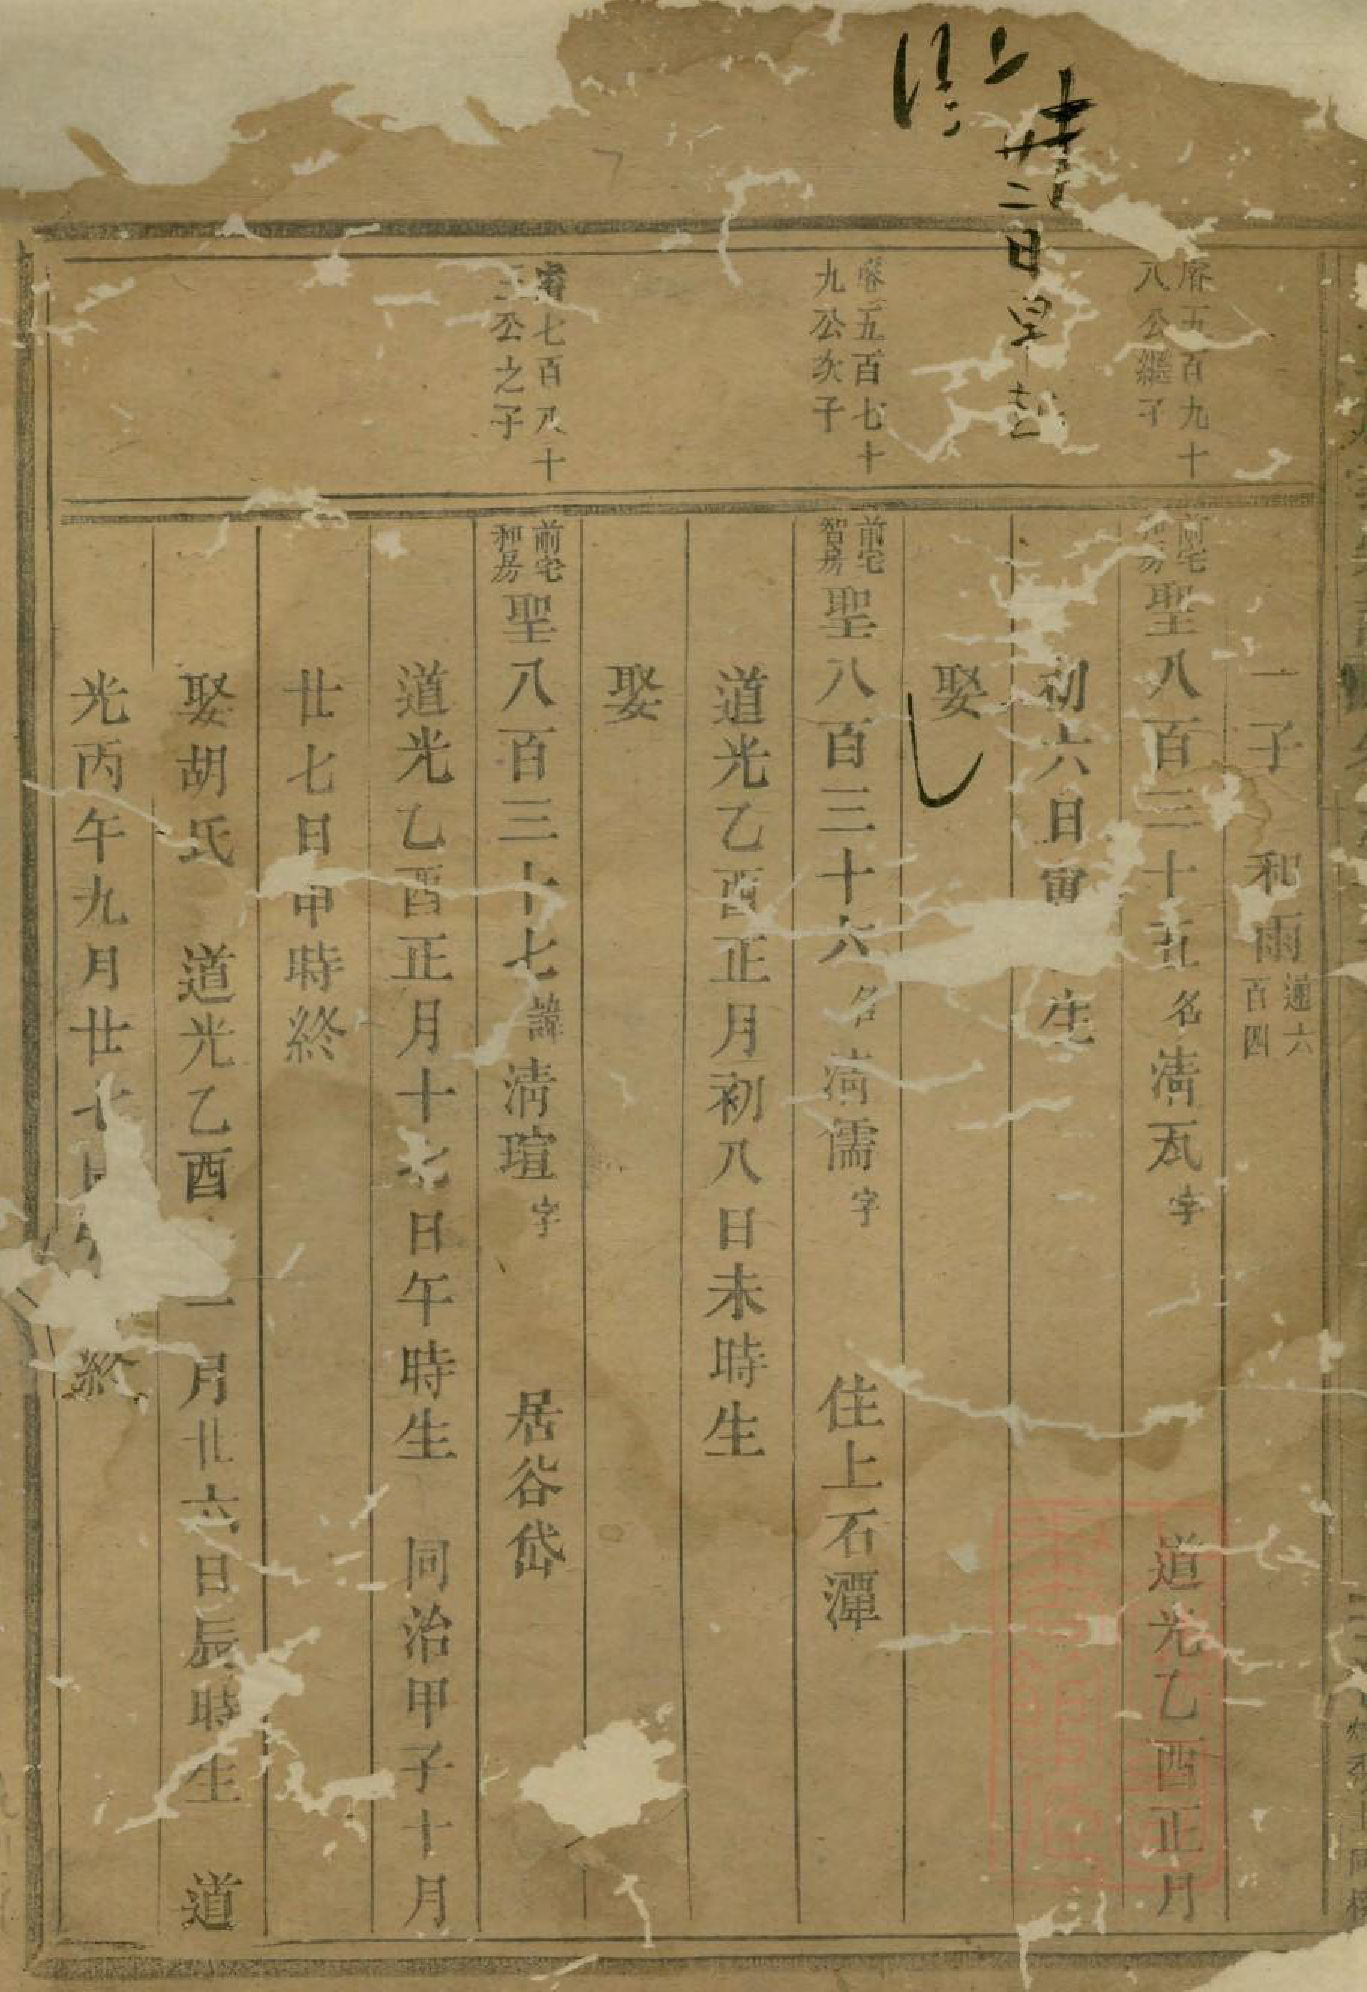 一子 和雨 遜六百四
五百九十
八公繼子
前宅
聖八百三十五 名清 字 道光乙酉正月
初六日寅 生
廿二日早起
娶
睿五百七十
九公次子
前宅
智房
聖八百三十六 名清儒 字 住上石潭
道光乙酉正月初八日未時生
娶
睿七百八十
三公之子
前宅
和房
聖八百三十七 諱清瑄 字 居谷岱
道光乙酉正月十七日午時生 同治甲子十月
廿七日申時終
娶胡氏 道光乙酉 一月廿六日辰時生 道
光丙午九月廿七日 終